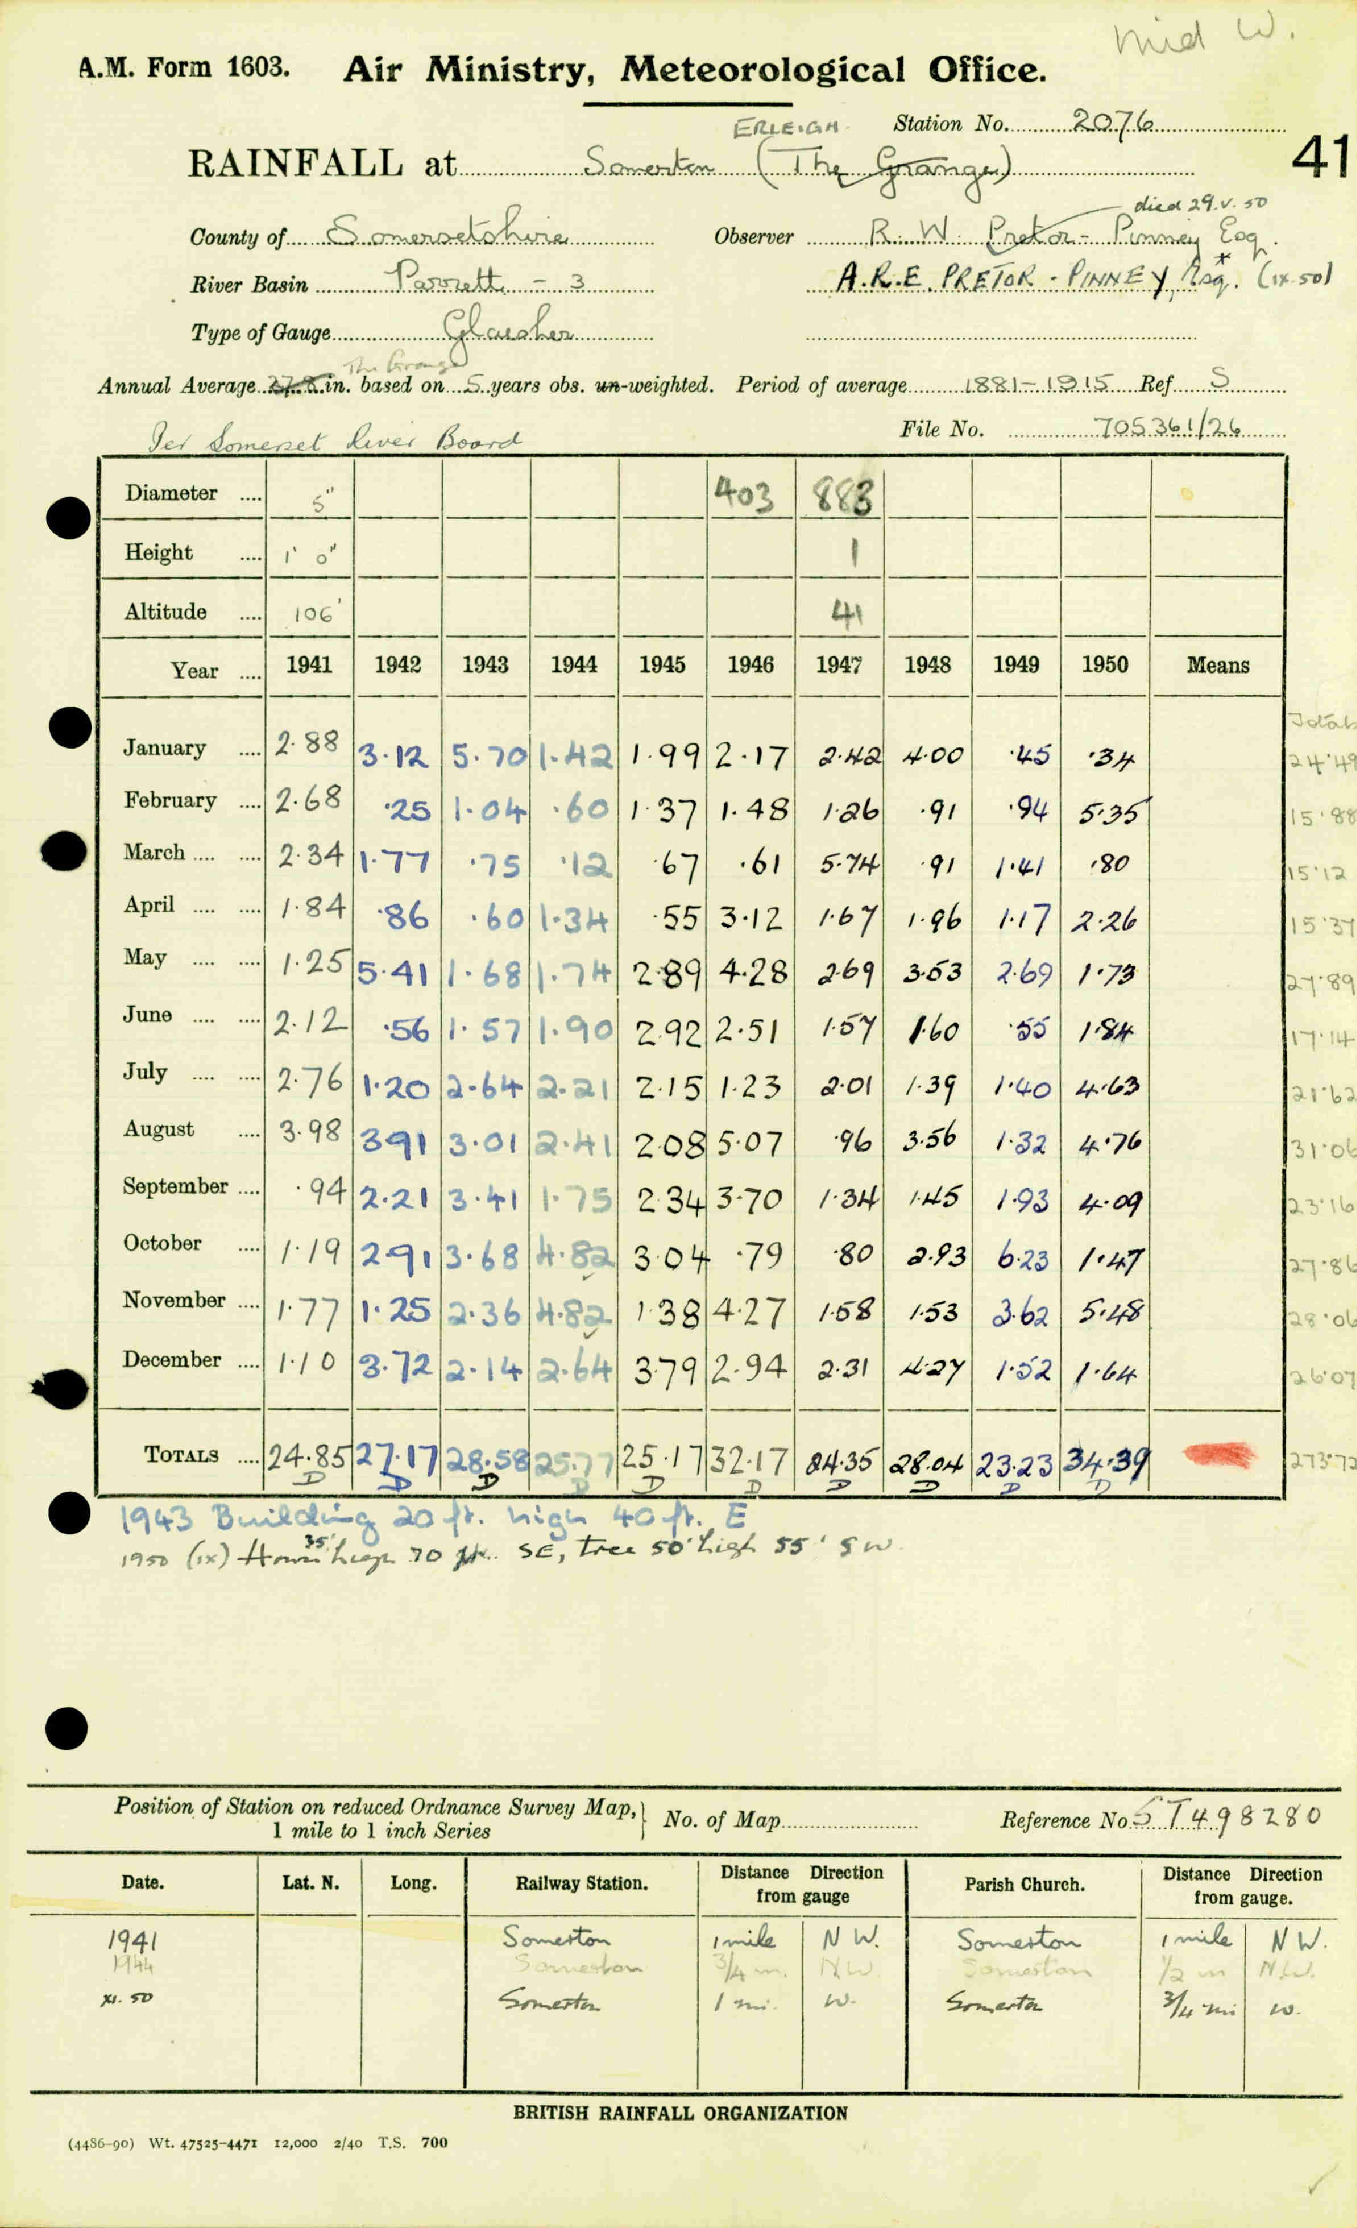 mid W.
A.M. Form 1603. Air Ministry, Meteorological Office.
ERLEIGH Station No. 2076
RAINFALL at Somerton (The Grange) 41
died 29.v.50
County of Somersetshire Observer R. W. Pretor-Pinney Esq.
River Basin Parrett - 3 A.R.E. PRETOR-PINNEY, Esq.* (ix.50)
Type of Gauge Glaisher
The Grange
Annual Average 27.8 in. based on 5 years obs. un-weighted. Period of average 1881-1915 Ref S
File No. 705361/26
Per Somerset River Board
Diameter .... 5" 403 883
Height .... 1' 0" 1
Altitude .... 106' 41
Year .... 1941 1942 1943 1944 1945 1946 1947 1948 1949 1950 Means
Totals
January .... 2.88 3.12 5.70 1.42 1.99 2.17 2.42 4.00 .45 .34 24.49
February .... 2.68 .25 1.04 .60 1.37 1.48 1.26 .91 .94 5.35 15.88
March .... .... 2.34 1.77 .75 .12 .67 .61 5.74 .91 1.41 .80 15.12
April .... .... 1.84 .86 .60 1.34 .55 3.12 1.67 1.96 1.17 2.26 15.37
May .... .... 1.25 5.41 1.68 1.74 2.89 4.28 2.69 3.53 2.69 1.73 27.89
June .... .... 2.12 .56 1.57 1.90 2.92 2.51 1.57 1.60 .55 1.84 17.14
July .... .... 2.76 1.20 2.64 2.21 2.15 1.23 2.01 1.39 1.40 4.63 21.62
August .... 3.98 3.91 3.01 2.41 2.08 5.07 .96 3.56 1.32 4.76 31.06
September .... .94 2.21 3.41 1.75 2.34 3.70 1.34 1.45 1.93 4.09 23.16
October .... 1.19 2.91 3.68 4.82 3.04 .79 .80 2.93 6.23 1.47 27.86
November .... 1.77 1.25 2.36 4.82 1.38 4.27 1.58 1.53 3.62 5.48 28.06
December .... 1.10 3.72 2.14 2.64 3.79 2.94 2.31 4.27 1.52 1.64 26.07
TOTALS .... 24.85 27.17 28.58 25.77 25.17 32.17 24.35 28.04 23.23 34.39 273.72
D D D D D D D D D D
1943 Building 20 ft. high 40 ft. E
1950 (ix) House 35' high 70 ft. SE, tree 50' high 55' SW.
Position of Station on reduced Ordnance Survey Map, 1 mile to 1 inch Series } No. of Map Reference No ST498280
Date. Lat. N. Long. Railway Station. Distance from gauge Direction Parish Church. Distance from gauge. Direction
1941 Somerton 1 mile N W. Somerton 1 mile N W.
1944 Somerton 3/4 m. N.W. Somerton 1/2 m N.W.
xi. 50 Somerton 1 mi. W. Somerton 3/4 mi W.
BRITISH RAINFALL ORGANIZATION
(4486-90) Wt. 47525-4471 12,000 2/40 T.S. 700